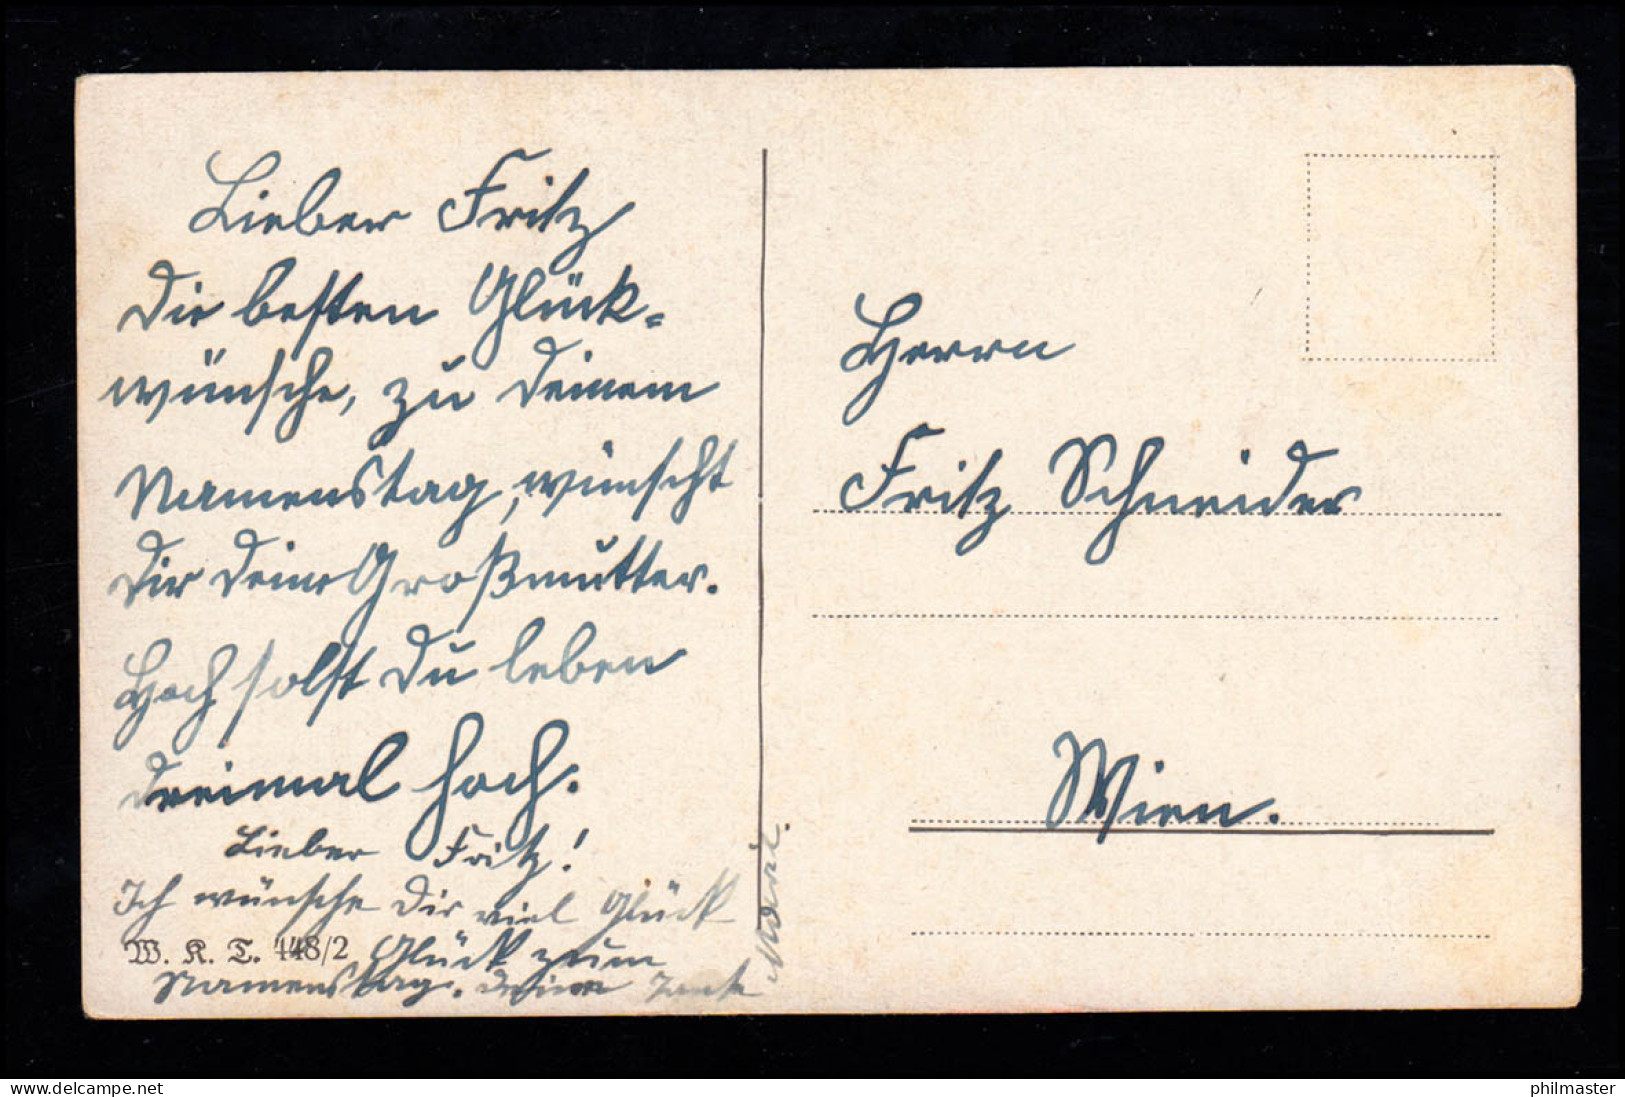 Lieber Fritz
Die besten Glück-
wünsche, zu Deinem
Namenstag, wünscht
Dir Deine Großmutter.
Hoch sollst Du leben
dreimal hoch.
Lieber Fritz!
Ich wünsche Dir viel Glück
Glück zum
Namenstag. Deine Tante
W. K. T. 448/2
Herrn
Fritz Schneider
Wien.
philmaster